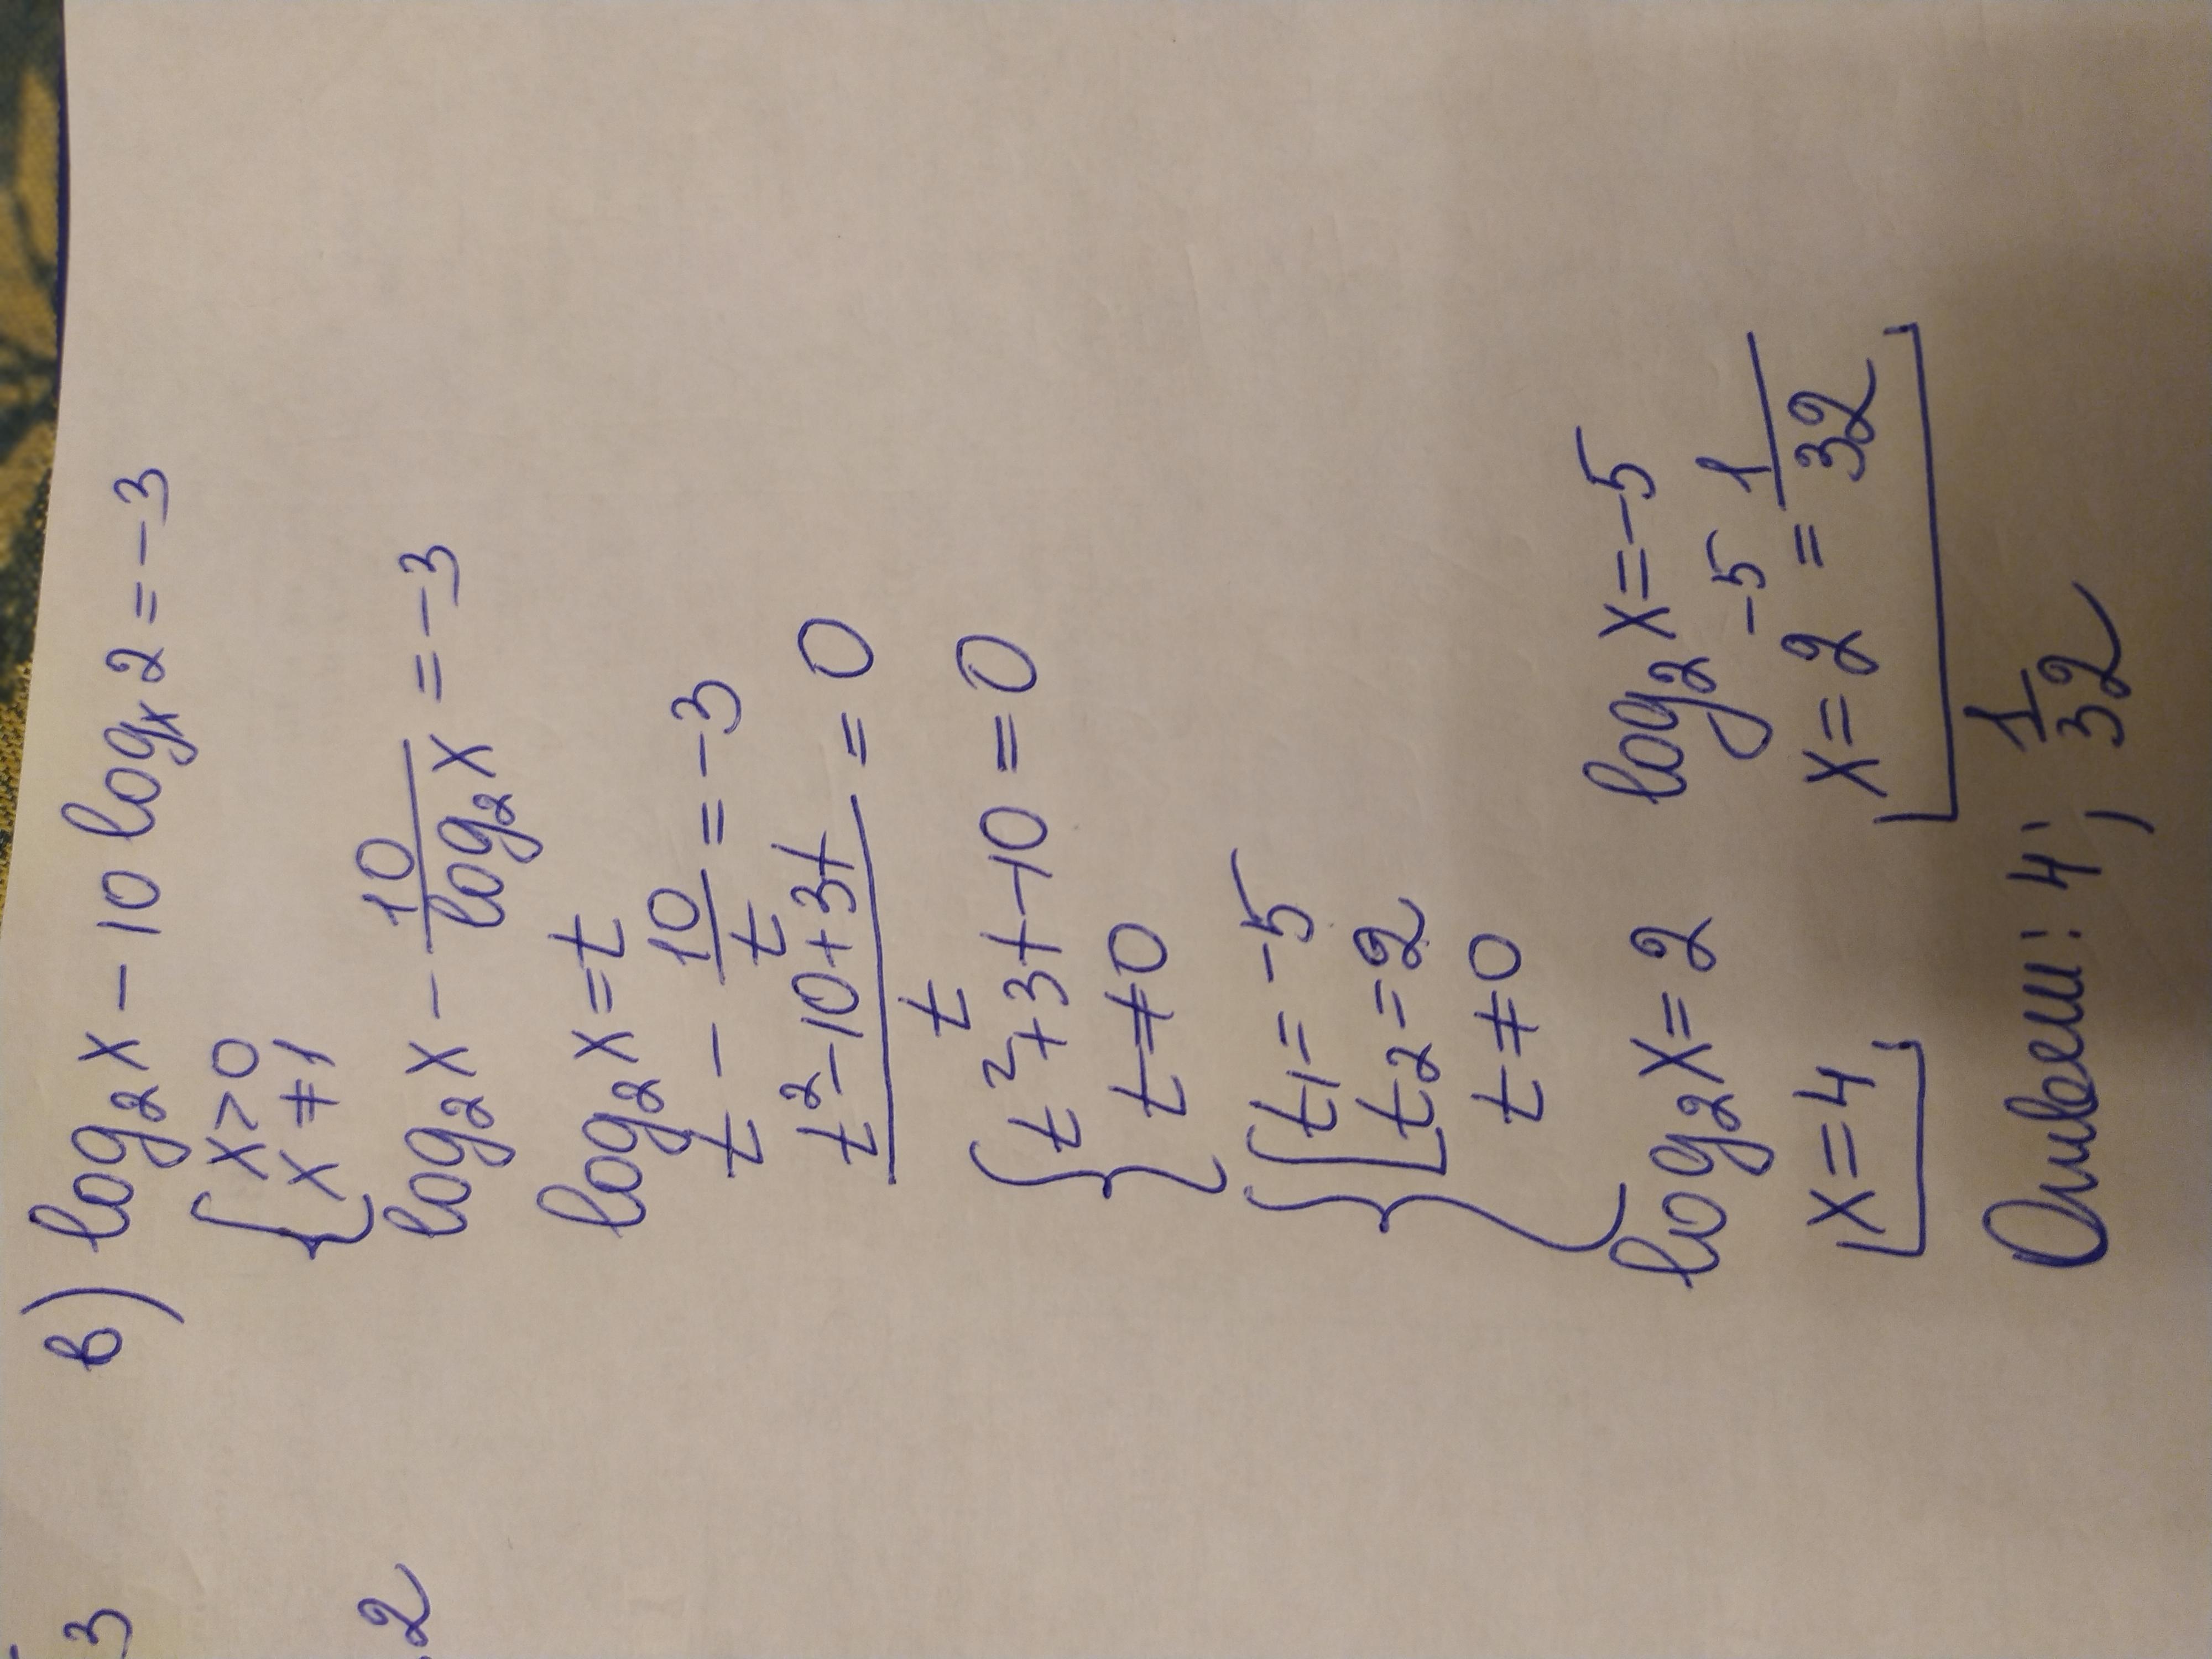 в) log₂x - 10 logₓ2 = -3
{ x > 0
x ≠ 1
log₂x - 10/log₂x = -3
log₂x = t
t - 10/t = -3
(t² - 10 + 3t)/t = 0
{ t² + 3t - 10 = 0
t ≠ 0
{ [ t₁ = -5
t₂ = 2
t ≠ 0
log₂x = 2 log₂x = -5
x = 4 x = 2⁻⁵ = 1/32
Ответ: 4; 1/32
3
2